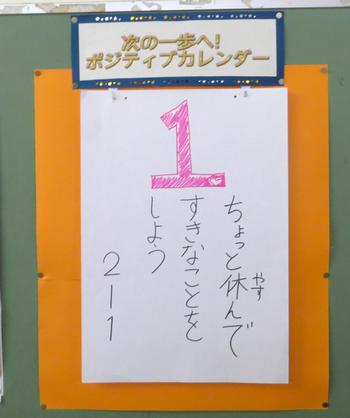 次の一歩へ!
ポジティブカレンダー
1
ちょっと休んで
やす
すきなことを
しよう
2-1